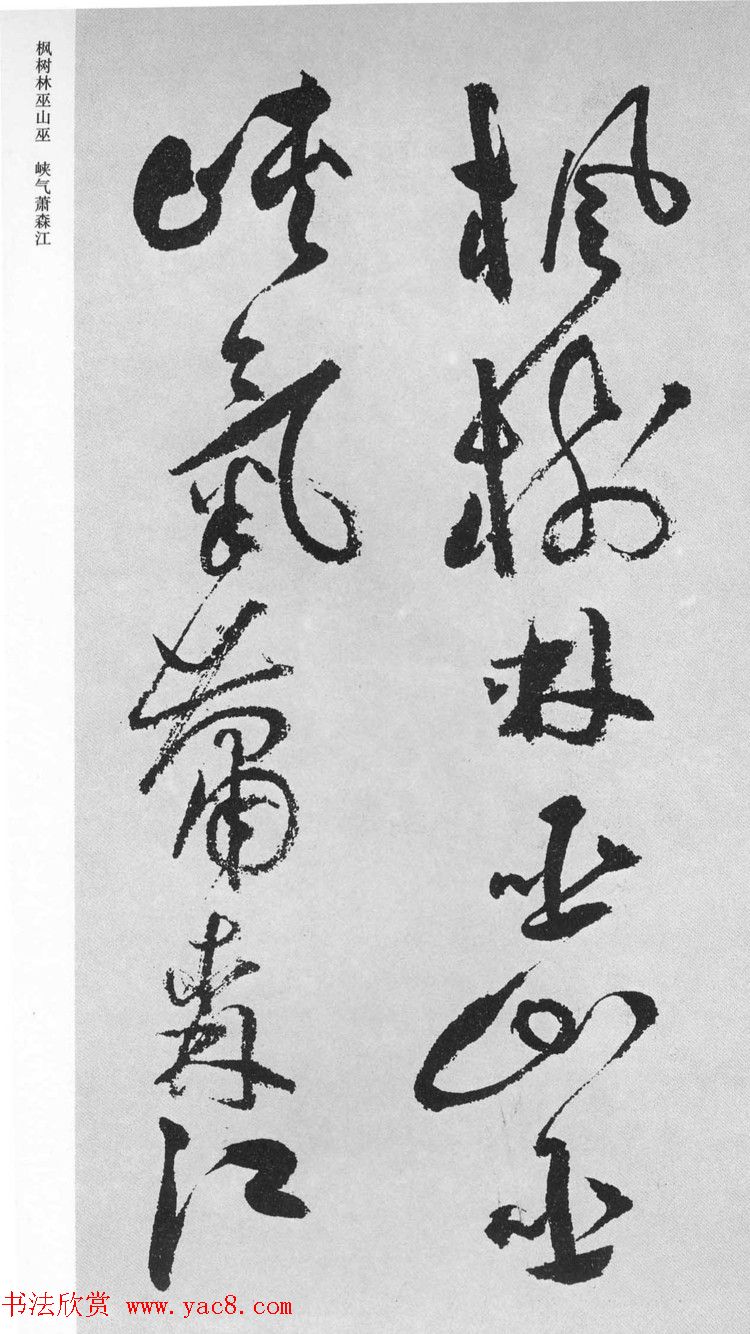 枫树林巫山巫 峡气萧森江
楓樹林巫山巫
峽氣蕭森江
书法欣赏 www.yac8.com